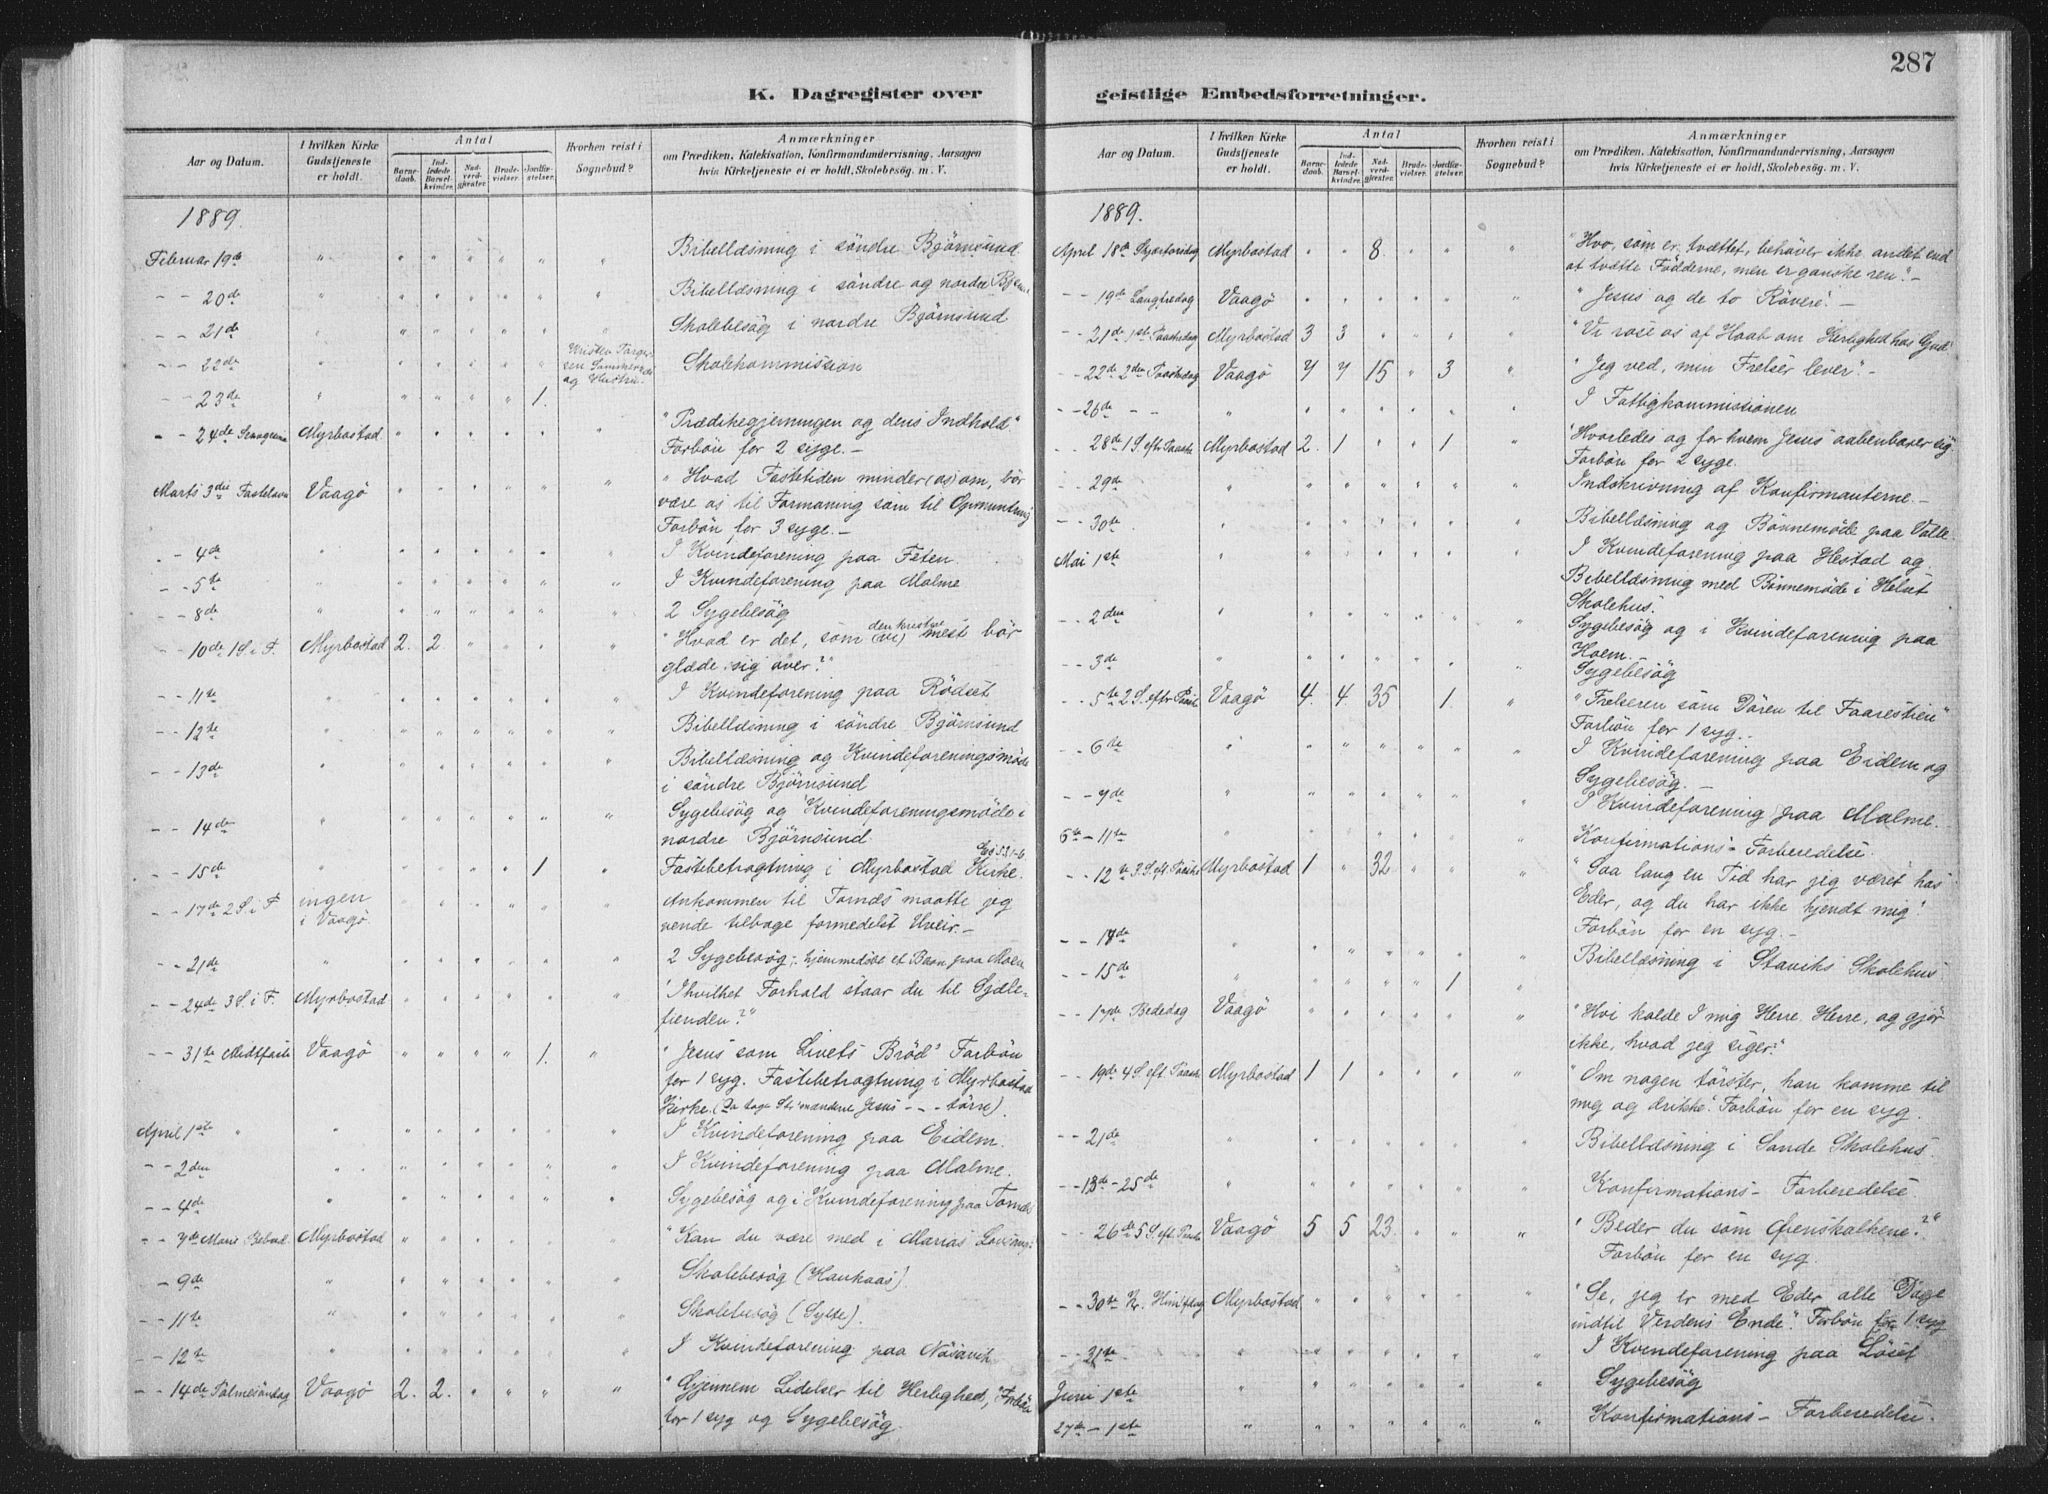 287
K. Dagregister over
Aar og Datum.
I hvilken Kirke Gudstjeneste er holdt.
Antal
Barnedaab.
Indledede Barselkvinder.
Nadverdgjester.
Brudevielser.
Jordfæstelser.
Hvorhen reist i Sognebud?
Anmærkninger
om Prædiken, Katekisation, Konfirmandundervisning, Aarsagen
hvis Kirketjeneste ei er holdt, Skolebesøg, m. V.
1889.
Februar 19de " " " " " " " Bibellæsning i söndre Bjørnsund
- - 20de " " " " " " " Bibellæsning i söndre og nordre
- - 21de " " " " " " " Skolebesøg i nordre Bjørnsund
- - 22de " " " " " " Skolekommission
og Hustru
- - 23de " " " " " 1.
- - 24de Myrbostad " " " " " " "Prædikegjerningen og dens Indhold"
Forbön for 2 syge. -
Marts 3die Fastelavn Vaagö " " " " " " "Hvad Fastetiden minder (os) om, bör
være os til Formaning som til Opmuntring
Forbön for 3 syge. -
- - 4de " " " " " " " I Kvindeforening paa Feten.
- - 5te " " " " " " " I Kvindeforening paa Malme
- - 8de " " " " " " " 2 Sygebesøg
- - 10de 1 S. i F. Myrbostad 2. 2. " " " " "Hvad er det, som (vi) mest bör
glæde sig over?"
- - 11te " " " " " " " I Kvindeforening paa Rödset
- - 12te " " " " " " " Bibellæsning i söndre Bjørnsund
- - 13de " " " " " " " Bibellæsning og Kvindeforeningsmöde
i söndre Bjørnsund
- - 14de " " " " " " " Sygebesøg og Kvindeforeningsmöde i
nordre Bjørnsund
- - 15de " " " " " 1 " Fastebetragtning i Myrbostad Kirke.
- - 17de 2 S. i F. ingen i Vaagö " " " " " " Ankommen til Tornæs maatte jeg
vende tilbage formedelst Uveir. -
- - 21de " " " " " " " 2 Sygebesøg; hjemmedöbt et Barn paa Moen
- - 24de 3 S. i F. Myrbostad " " " " " " "I hvilket Forhold staar du til Sjæle-
fienden?"
- - 31te Midtfaste Vaagö " " " " 1. " "Jesus som Livets Bröd" Forbön
for 1 syg. Fastebetragtning i Myrbostad
Kirke. (Da tage Stridsmændene Jesus - - - törre).
April 1ste " " " " " " " I Kvindeforening paa Eidem.
- - 2den " " " " " " " I Kvindeforening paa Malme.
- - 4de " " " " " " " Sygebesøg og i Kvindeforening paa Tornæs
- - 7de Mariæ Bebud. Myrbostad " " " " " " "Kan du være med i Marias Lovsang?
- - 9de " " " " " " " Skolebesøg (Haukaas).
- - 11te " " " " " " " Skolebesøg (Sylte).
- - 12te " " " " " " " I Kvindeforening paa Näsavik
- - 14de Palmesöndag Vaagö 2. 2. " " " " "Gjennem Lidelser til Herlighed," Forbön
for 1 syg og Sygebesøg.
geistlige Embedsforretninger.
Aar og Datum.
I hvilken Kirke Gudstjeneste er holdt.
Antal
Barnedaab.
Indledede Barselkvinder.
Nadverdgjester.
Brudevielser.
Jordfæstelser.
Hvorhen reist i Sognebud?
Anmærkninger
om Prædiken, Katekisation, Konfirmandundervisning, Aarsagen
hvis Kirketjeneste ei er holdt, Skolebesøg, m. V.
1889.
April 18de Skjærtorsdag Myrbostad " " 8. " " " "Hvo, som er tvættet, behöver ikke andet end
at tvætte Födderne, men er ganske ren." -
- - 19de Langfredag Vaagö " " " " " " "Jesus og de to Rövere". -
- - 21de 1ste Paaskedag Myrbostad 3 3 " " " " "Vi rose os af Haab om Herlighed hos Gud"
- - 22de 2den Paaskedag Vaagö 7 7 15 " 3 " "Jeg ved, min Frelser lever". -
- - 26de - - " " " " " " " I Fattigkommissionen
- - 28de 1 S. eft. Paaske Myrbostad 2. 1 " " 1 " "Hvorledes og for hvem Jesus aabenbarer sig
Forbön for 2 syge.
- - 29de " " " " " " " Indskrivning af Konfirmanterne. -
- - 30te " " " " " " " Bibellæsning og Bönnemöde paa Valle.
Mai 1ste " " " " " " " I Kvindeforening paa Hestad og
Bibellæsning med Bönnemöde i Helset
Skolehus.
- - 2den " " " " " " " Sygebesøg og i Kvindeforening paa
Hoem. -
- - 3de " " " " " " " Sygebesøg
- - 5te 2 S. eftr Paaske Vaagö 4. 4. 35 " 1. " "Frelseren som Dören til Faarestien"
Forbön for 1 syg. -
- - 6te " " " " " " " I Kvindeforening paa Eidem og
Sygebesøg. -
- - 7de " " " " " " " I Kvindeforening paa Malme.
6te - 11te " " " " " " " Konfirmations - Forberedelse.
- - 12te 3 S. eft. Paaske Myrbostad 1 " 32 " " " "Saa lang en Tid har jeg været hos
Eder, og du har ikke kjendt mig".
Forbön for en syg. -
- - 14de " " " " " " " Bibellæsning i Staviks Skolehus
- - 15de " " " " " 1 "
- - 17de Bededag Vaagö " " " " " " "Hvi kalde I mig Herre, Herre, og gjør
ikke, hvad jeg siger?"
- - 19de 4 S. eft. Paaske Myrbostad 1 1 " " " " "Om nogen törster, han komme til
mig og drikke". Forbön for en syg.
- - 21de " " " " " " " Bibellæsning i Sande Skolehus.
- - 13de - 25de " " " " " " " Konfirmations - Forberedelse.
- - 26de 5 S. eft. Paaske Vaagö 5 5 23. " " " "Beder du som Ørenskalkene?"
Forbön for en syg.
- - 30te Kr. Himfdag Myrbostad " " " " " " "Se, jeg er med Eder alle Dage
indtil Verdens Ende". Forbön for 1 syg
- - 31te " " " " " " " I Kvindeforening paa Löset
Juni 1ste " " " " " " " Sygebesøg
27de - 1ste " " " " " " " Konfirmations - Forberedelse.